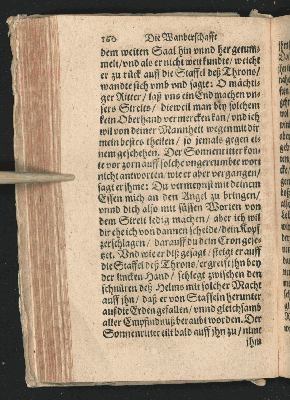 160 Die Wanderschafft
dem weiten Saal hin vnnd her getum-
melt/ vnd als er nicht weit kundte/ weicht
er zu rück auff die Staffel deß Throns/
wandte sich vmb vnd sagte: O mächti-
ger Ritter/ laß vns ein End machen vn-
sers Streits/ dieweil man bey solchem
kein Oberhand vermercken kan/ vnd ich
wil von deiner Mannheit wegen mit dir
mein bestes theilen/ so jemals gegen ei-
nem geschehen. Der Sonnenritter kan-
te vor zorn auff solche vngereumbte wort
nicht antworten/ wie er aber vergangen/
sagt er ihme: Du vermeynst mit deinem
Essen mich an den Angel zu bringen/
vnnd dich also mit süssen Worten von
dem Streit ledig machen/ aber ich wil
dir ehe ich von dannen scheide/ dein Kopf
zerschlagen/ darauff du dein Cron gese-
tzet. Vnd wie er diß gesagt/ steigt er auff
die Staffel deß Throns/ ergreifft ihn bey
der lincken Hand/ schlegt zwischen den
schnüren deß Helms mit solcher Macht
auff ihn/ daß er von Staffeln herunter
auß die Erden gefallen/ vnnd gleichsamb
aller Empfindnuß beraubt worden. Der
Sonnenritter eilt bald auff ihn zu/ nime
ihm